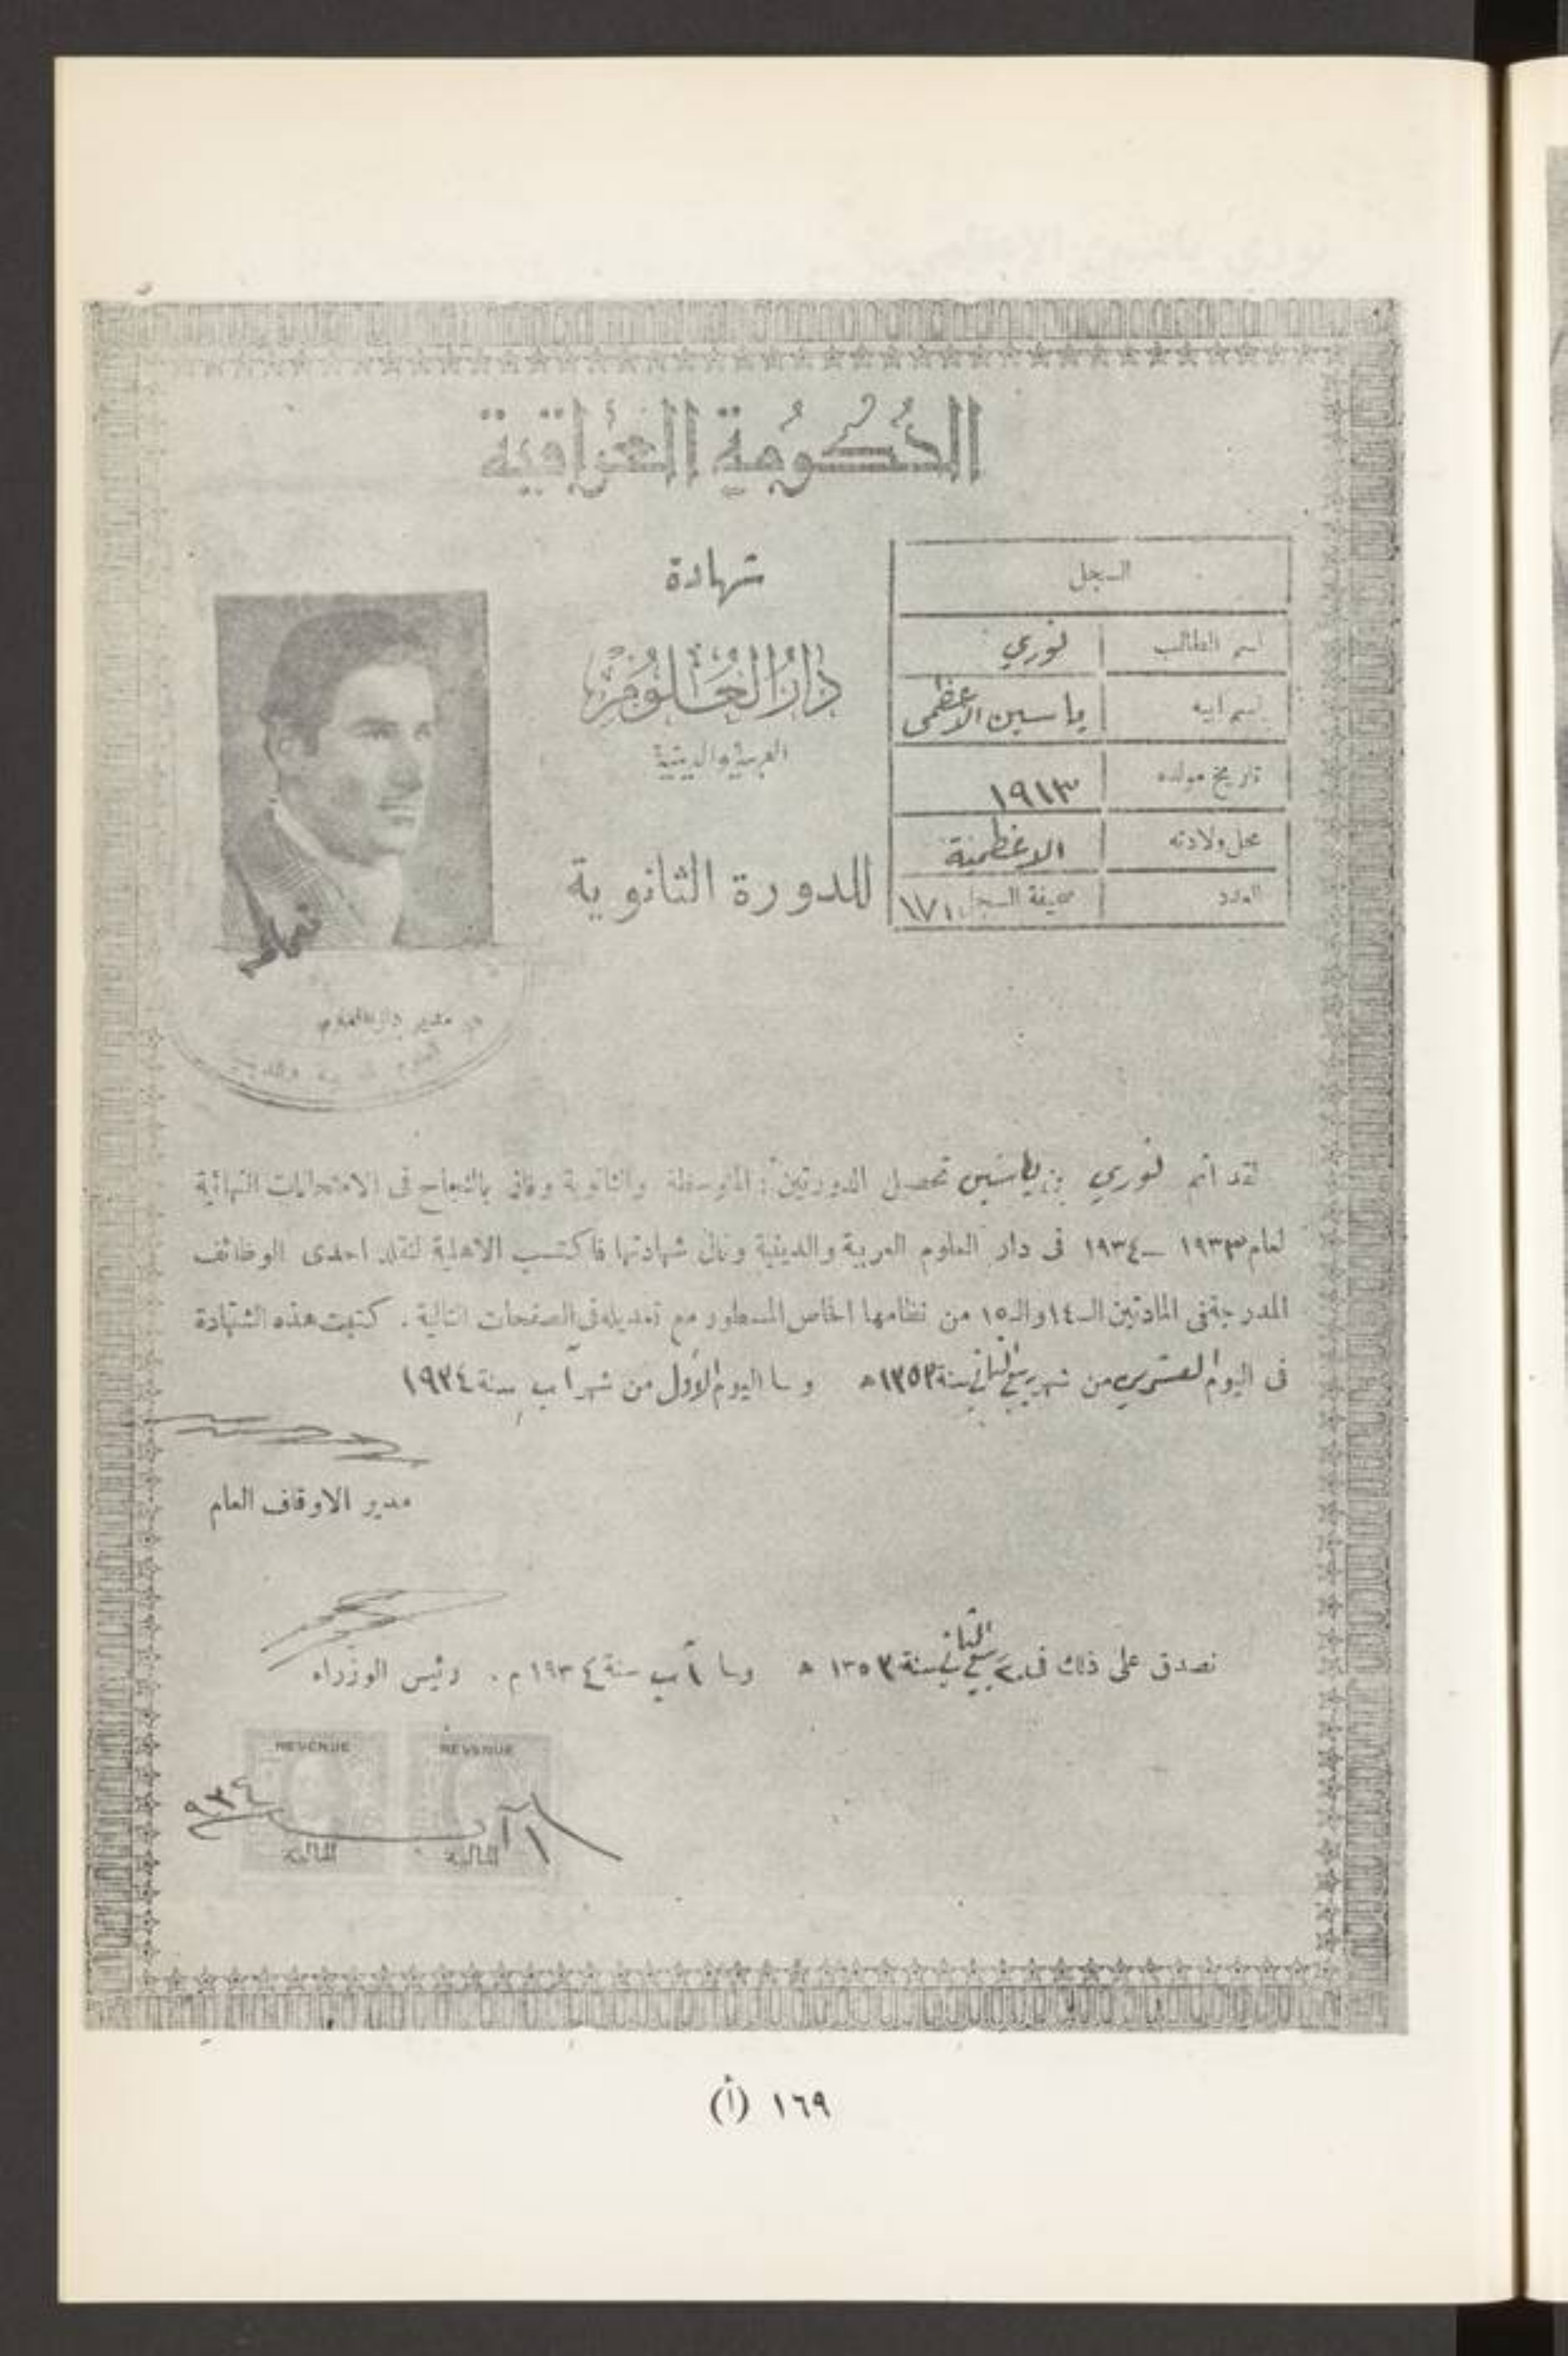 الحكومة العراقية
شهادة
دار العلوم
العربية والدينية
للدورة الثانوية
السجل
اسم الطالب نوري
اسم ابيه ياسين الاعظمي
تاريخ مولده ١٩١٣
محل ولادته الاعظمية
العدد صحيفة السجل ١٧١
مدير دار العلوم
لقد أتم نوري بن ياسين تحصيل الدورتين: المتوسطة والثانوية وفاز بالنجاح فى الامتحانات النهائية
لعام ١٩٣٣ – ١٩٣٤ فى دار العلوم العربية والدينية ونال شهادتها فاكتسب الاهلية لتقلد احدى الوظائف
المدرجة فى المادتين الـ١٤ والـ١٥ من نظامها الخاص المسطور مع تعديله فى الصفحات التالية. كتبت هذه الشهادة
فى اليوم العشرين من شهر ربيع الثاني سنة ١٣٥٣ھ و اليوم الأول من شهر آب سنة ١٩٣٤
مدير الاوقاف العام
نصدق على ذلك فى ٢٠ ربيع الثاني سنة ١٣٥٣ ھ و ١ آب سنة ١٩٣٤ م. رئيس الوزراء
REVENUE REVENUE
١ آب ٩٣٤
المالية المالية
١٦٩ (أ)